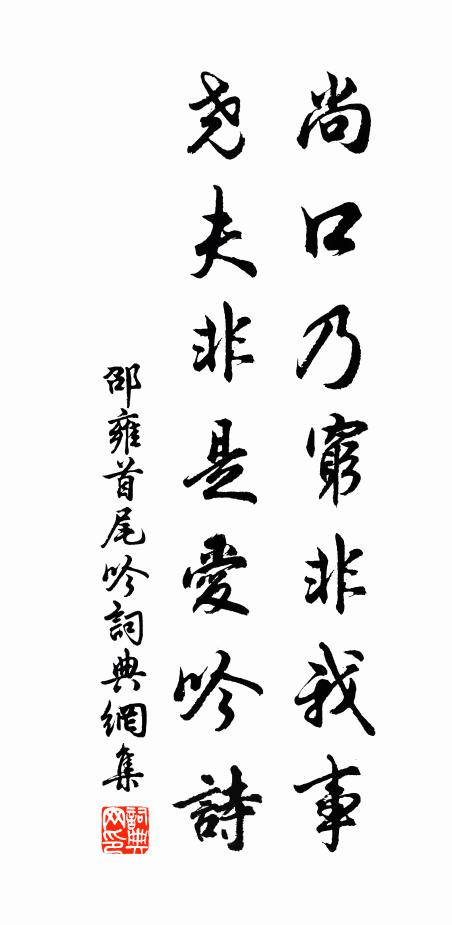 尚口乃窮非我事
尧夫非是愛吟詩
邵雍首尾吟詞典網集
詞典網印